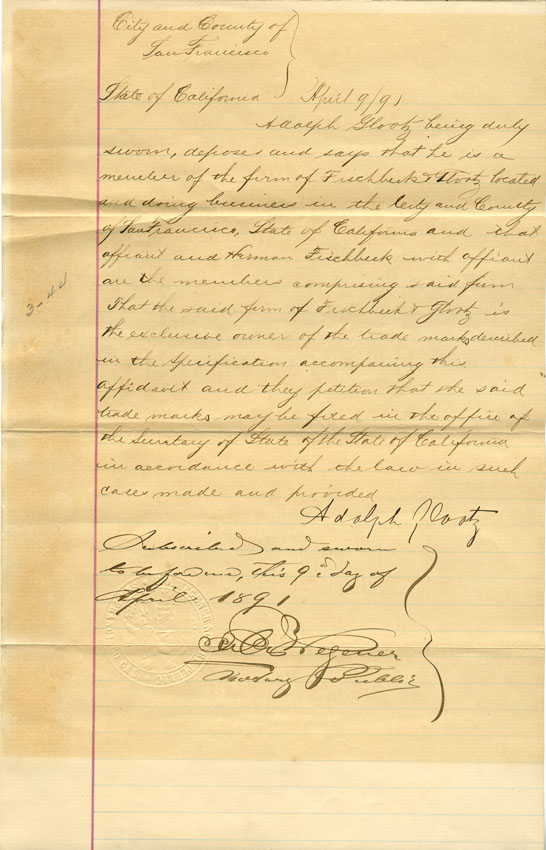 City and County of
San Francisco
State of California April 9/91
Adolph Glootz being duly
sworn, deposes and says that he is a
member of the firm of Fischbeck & Glootz located
and doing business in the City and County
of San Francisco, State of California and that
affiant and Herman Fischbeck with affiant
are the members comprising said firm
That the said firm of Fischbeck & Glootz is
the exclusive owner of the trade marks described
in the specification accompaning this
affidavit and they petition that the said
trade marks may be filed in the office of
the Secretary of State of the State of California
in accordance with the law in such
cases made and provided
3-44
Adolph Glootz
Subscribed and sworn
to before me, this 9 day of
April 1891
Wegener
Notary Public